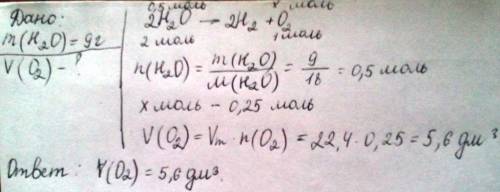 Дано:
m(H₂O)=9г
V(O₂) - ?
0,5 моль x моль
2H₂O — 2H₂ + O₂
2 моль 1 моль
n(H₂O) = m(H₂O)/M(H₂O) = 9/18 = 0,5 моль
x моль – 0,25 моль
V(O₂) = Vm · n(O₂) = 22,4 · 0,25 = 5,6 дм³
Ответ: V(O₂) = 5,6 дм³.